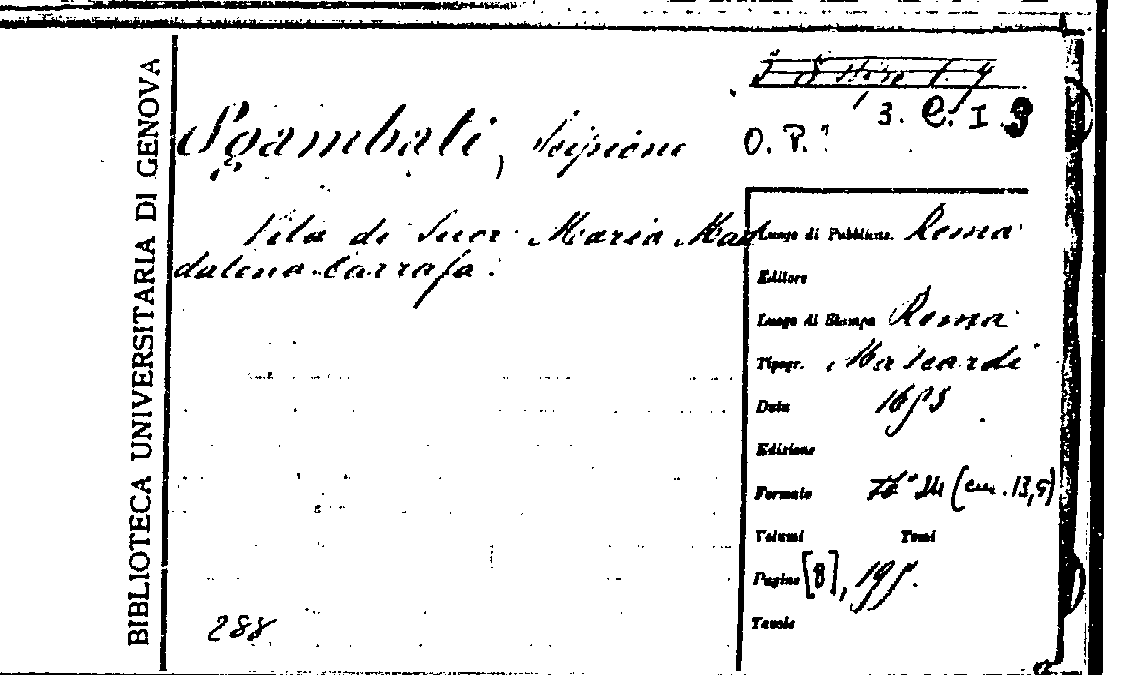 BIBLIOTECA UNIVERSITARIA DI GENOVA
3. C. I. 9
O. P.
Sgambati, Scipione
Vita di Suor Maria Mad
dalena Carrafa.
Luogo di Pubblicaz. Roma
Editore
Luogo di Stampa Roma
Tipogr. Mascardi
Data
Edizione
Formato 24 (cm. 13,5)
Volumi Tomi
Pagine [8], 195.
Tavole
288